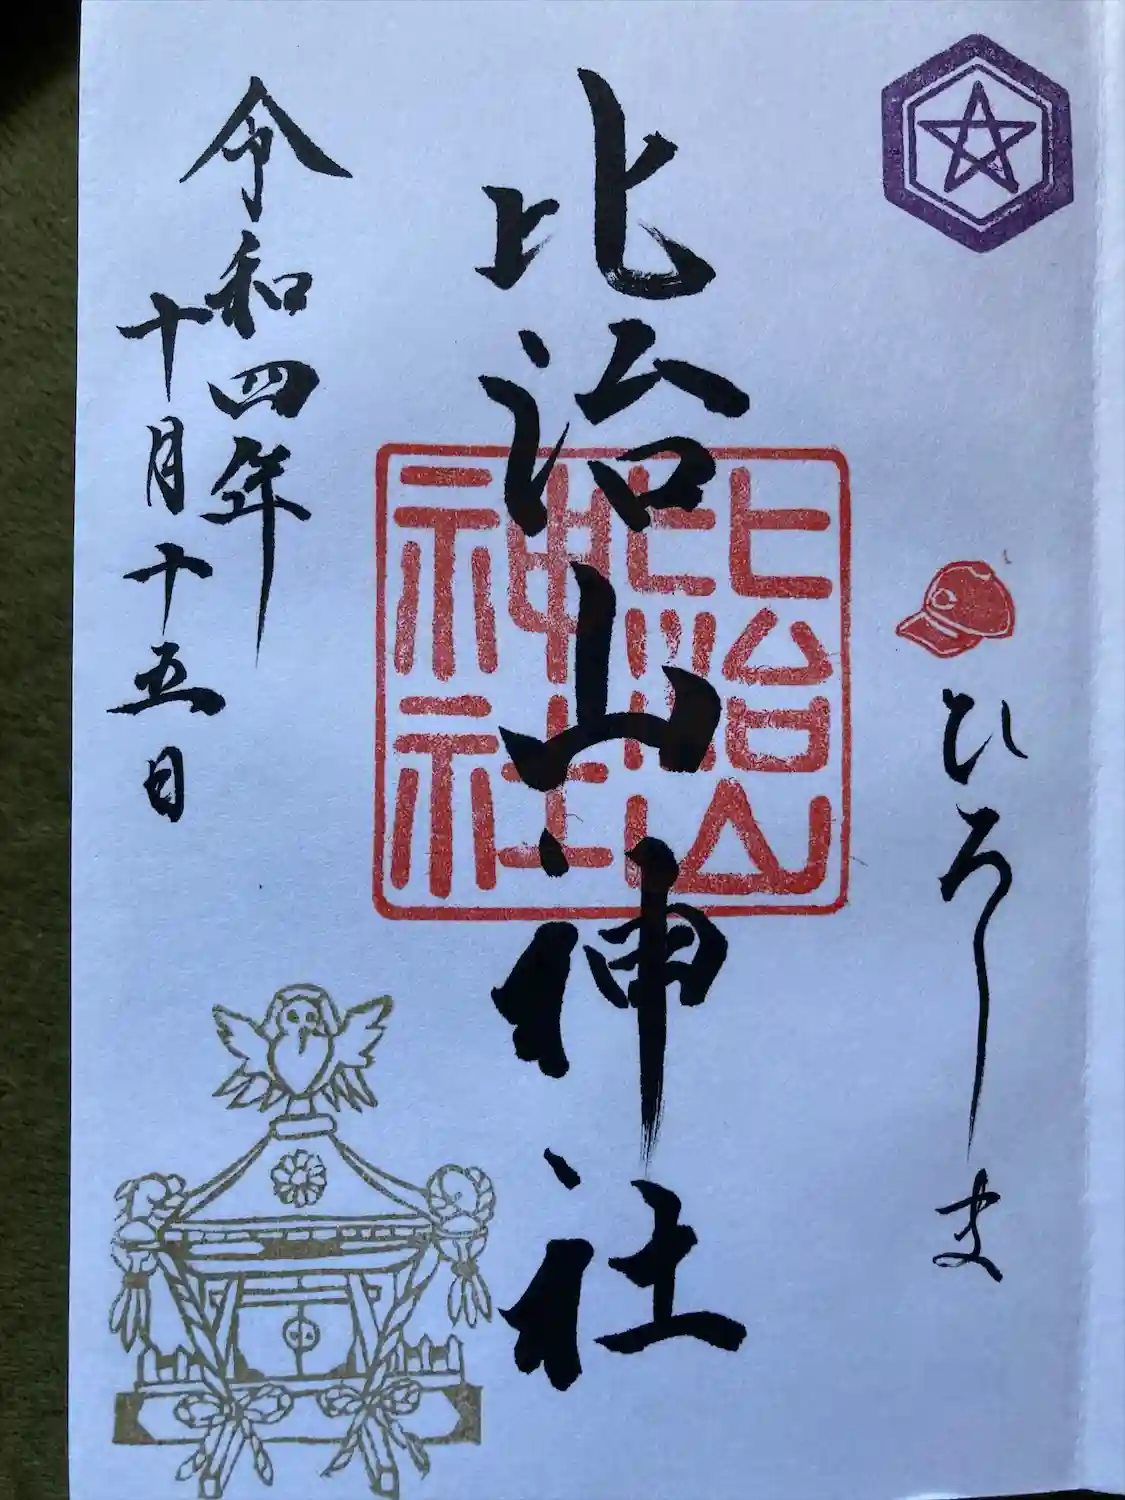 ひろしま
比治山神社
比治山
神社
令和四年
十月十五日